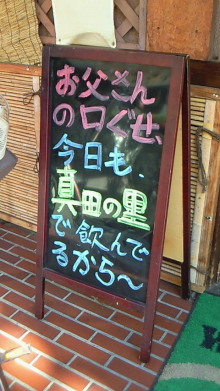 お父さん
の口ぐせ
今日も、
真田の里
で飲んで
るから～